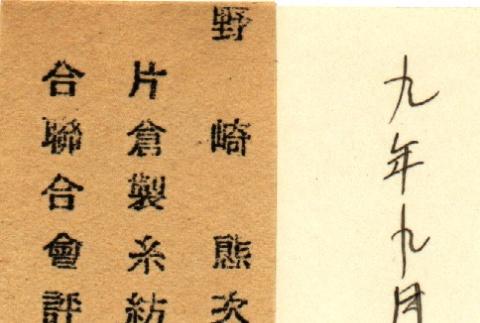 九年九月
野崎熊次
片倉製糸紡
合聯合會評